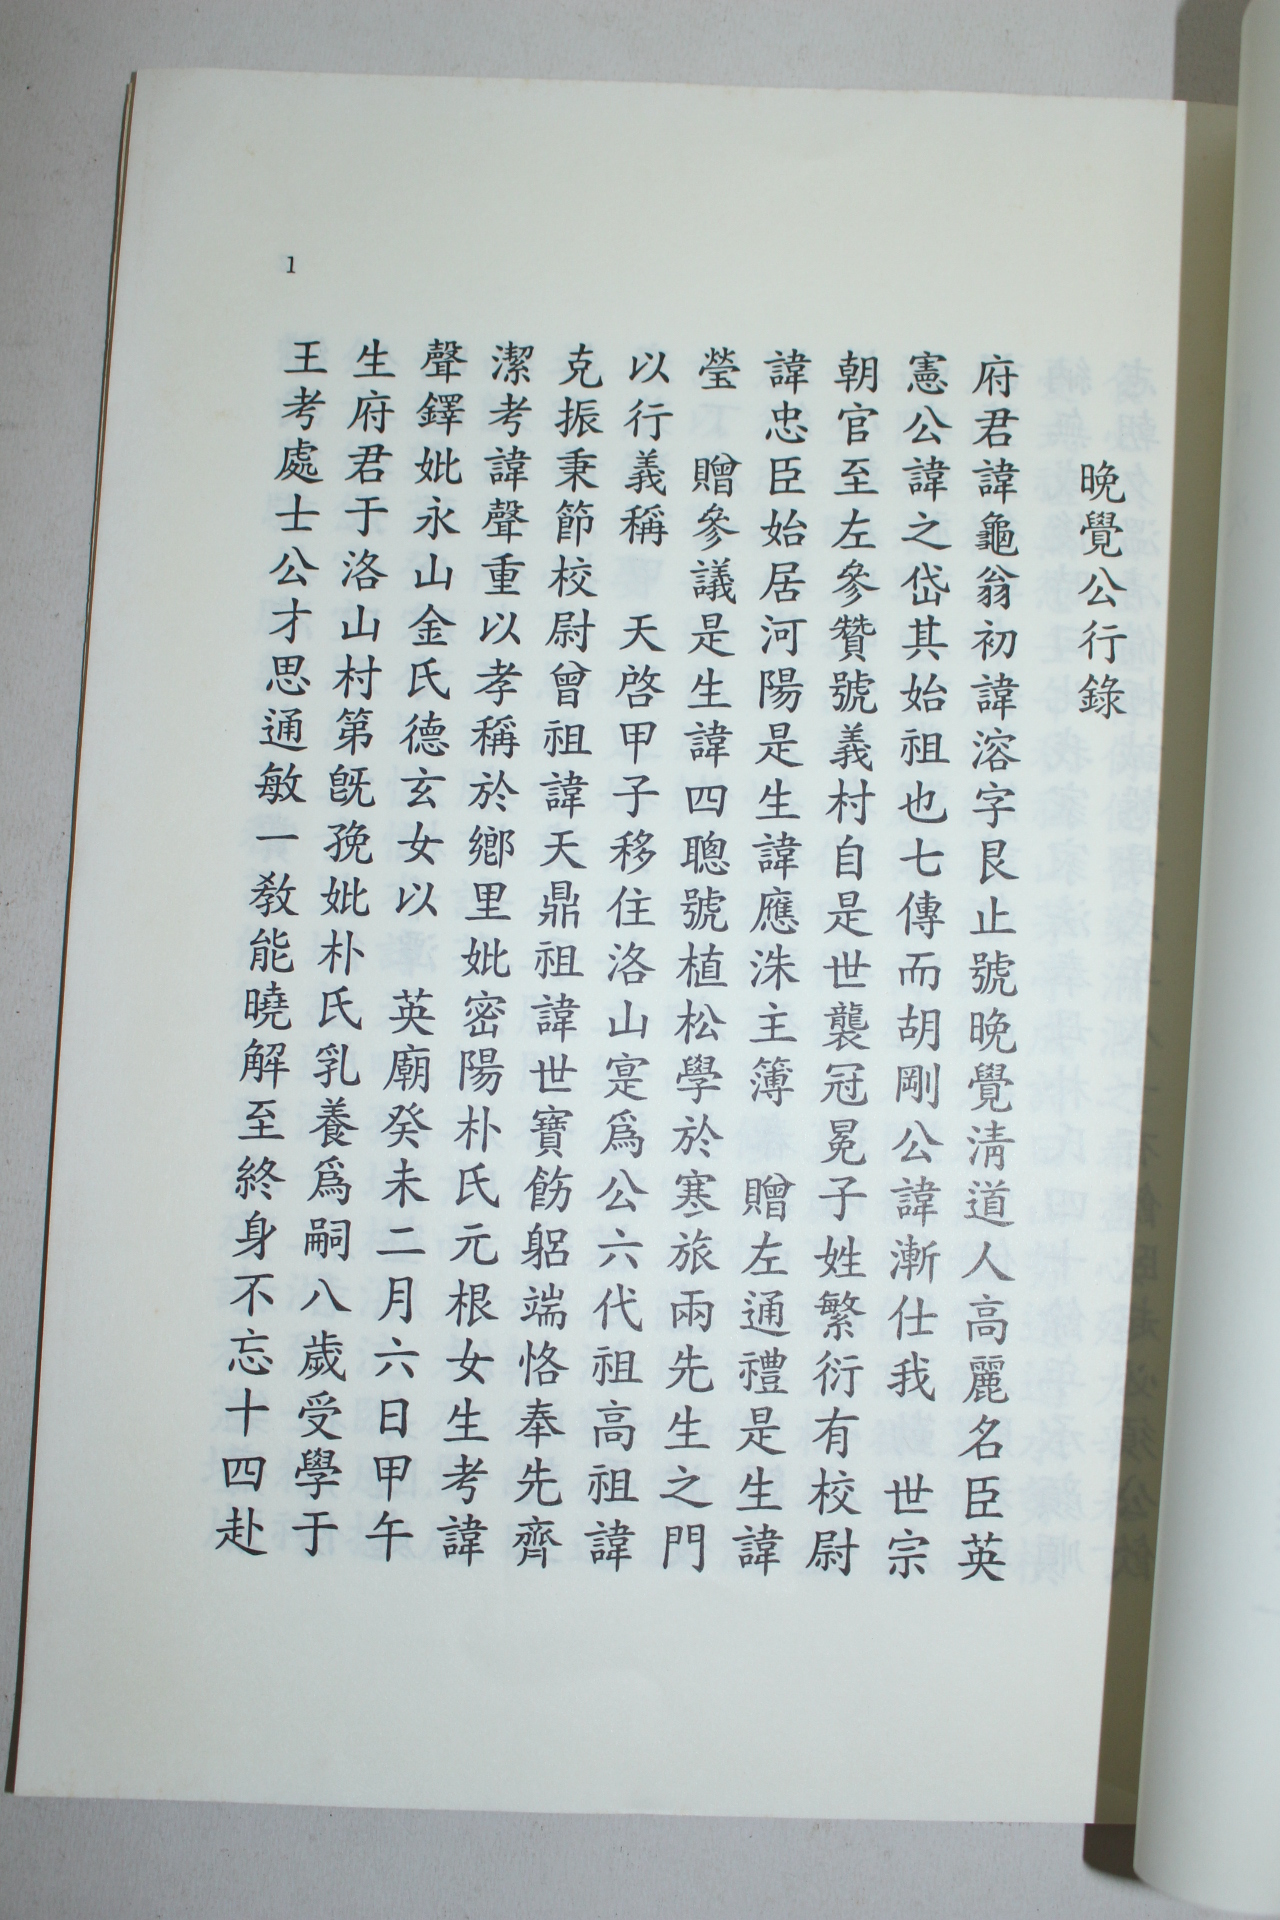 晚覺公行錄
府君諱龜翁初諱溶字艮止號晚覺淸道人高麗名臣英
憲公諱之岱其始祖也七傳而胡剛公諱漸仕我 世宗
朝官至左參贊號義村自是世襲冠冕子姓繁衍有校尉
諱忠臣始居河陽是生諱應洙主簿 贈左通禮是生諱
瑩 贈參議是生諱四聰號植松學於寒旅兩先生之門
以行義稱 天啓甲子移住洛山寔爲公六代祖高祖諱
克振秉節校尉曾祖諱天鼎祖諱世寶飭躬端恪奉先齊
潔考諱聲重以孝稱於鄕里妣密陽朴氏元根女生考諱
聲鐸妣永山金氏德玄女以 英廟癸未二月六日甲午
生府君于洛山村第旣㝃妣朴氏乳養爲嗣八歲受學于
王考處士公才思通敏一敎能曉解至終身不忘十四赴
1